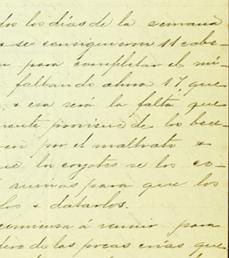 los días de la semana
se consiguieron 11 cabe
para completar el nú
faltando ahora 17, que
esa será la falta que
mente proviene de los bece
por el maltrato
los coyotes se los co
para que los
comienza á reunir para
de las pocas crías que